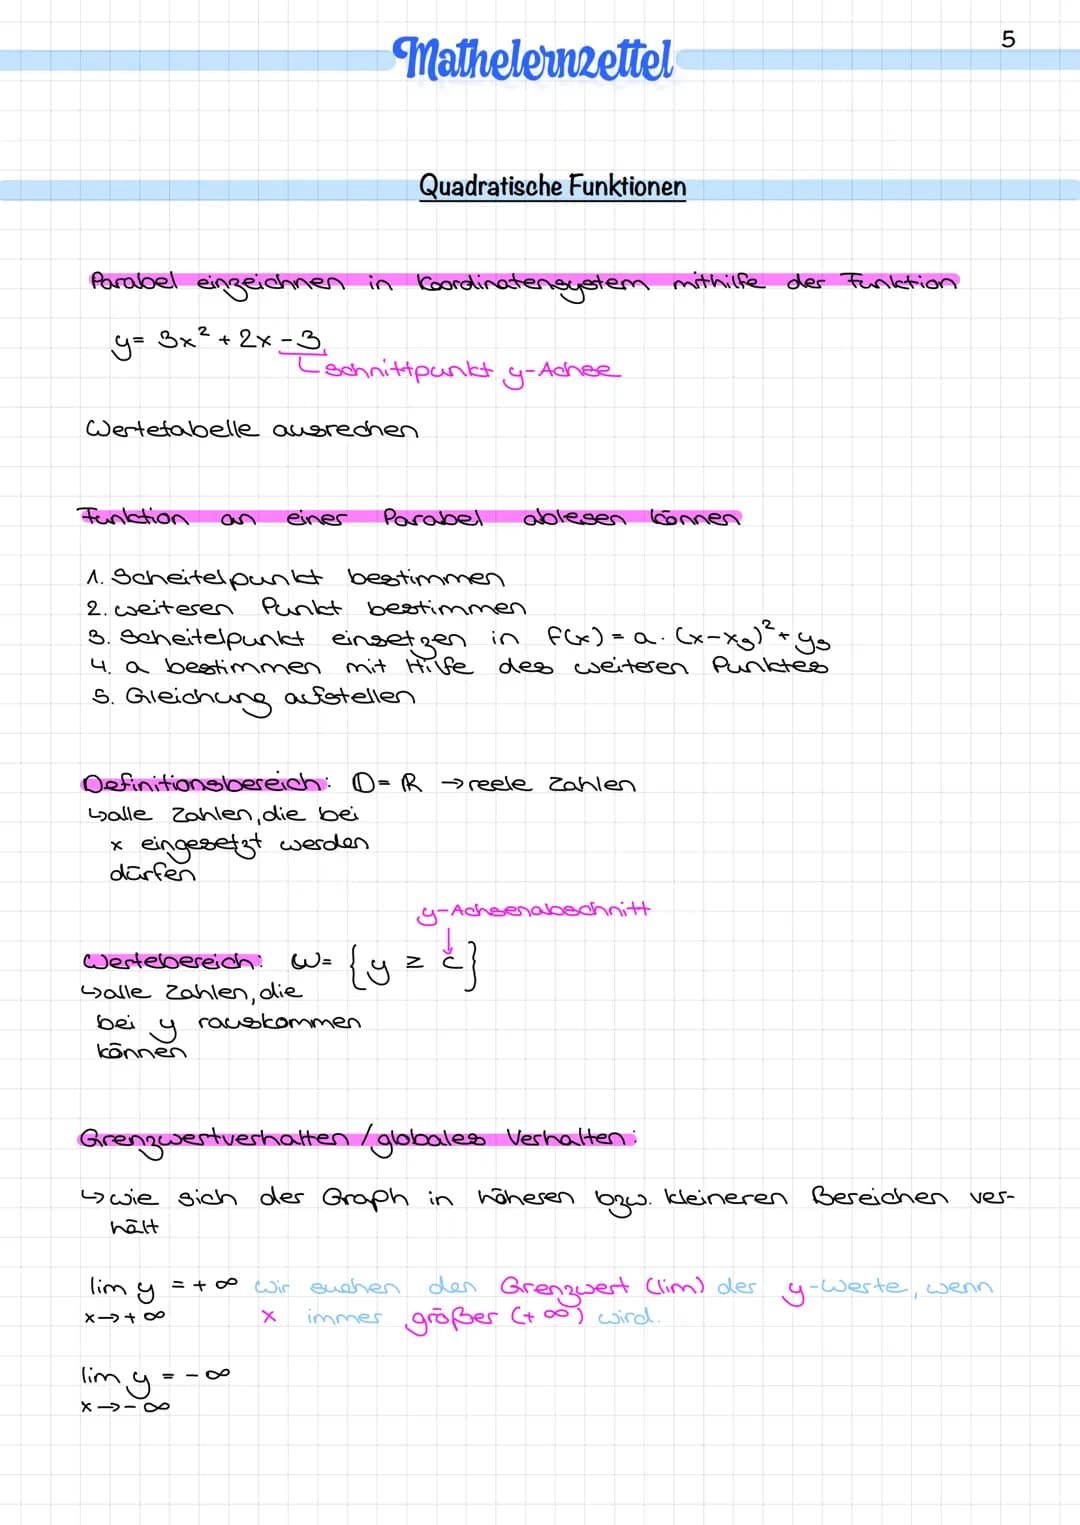 5
Mathelernzettel
Quadratische Funktionen
Parabel einzeichnen in Koordinatensystem mithilfe der Funktion
y= 3x² + 2x - 3
Schnittpunkt y-Achse
Wertetabelle ausrechen
Funktion an einer Parabel ablesen können
1. Scheitelpunkt bestimmen
2. weiteren Punkt bestimmen
3. Scheitelpunkt einsetzen in f(x) = a · (x-xs)² + ys
4. a bestimmen mit Hilfe des weiteren Punktes
5. Gleichung aufstellen
Definitionsbereich: D= ℝ → reele Zahlen
↳ alle Zahlen, die bei
x eingesetzt werden
dürfen
y-Achsenabschnitt
↓
Wertebereich: W= {y ≥ c}
↳ alle Zahlen, die
bei y rauskommen
können
Grenzwertverhalten / globales Verhalten:
↳ wie sich der Graph in höheren bzw. kleineren Bereichen ver-
hält
lim y = + ∞ wir suchen den Grenzwert (lim) der y-Werte, wenn
x → + ∞ x immer größer (+ ∞) wird.
lim y = - ∞
x → - ∞